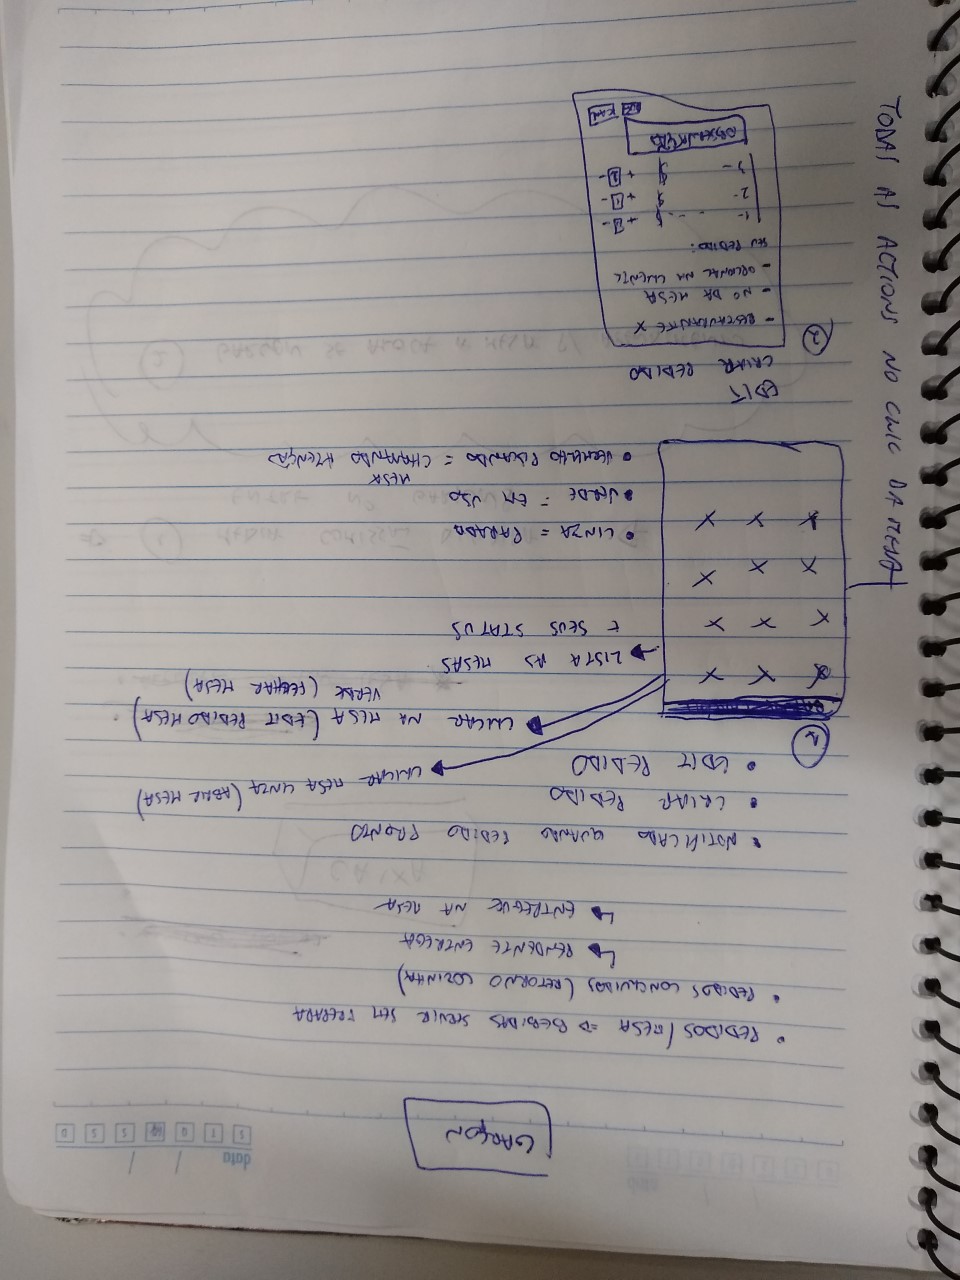 data / /
S T Q Q S S D
GARÇON
• PEDIDOS/MESA => BEBIDAS SERVIR SEM PREPARA
• PEDIDOS CONCLUIDOS (RETORNO COZINHA)
↳ PENDENTE ENTREGA
↳ ENTREGUE NA MESA
• NOTIFICADO QUANDO PEDIDO PRONTO
• CRIAR PEDIDO
• EDIT PEDIDO
→ CLICAR MESA CINZA (ABRIR MESA)
→ CLICAR NA MESA (EDIT PEDIDO MESA)
VERDE (FECHAR MESA)
1
X X X
X X X
X X X
X X X
→ LISTA AS MESAS
E SEUS STATUS
• CINZA = PARADA
• VERDE = EM USO
• VERMELHO PISCANDO = MESA CHAMANDO ATENÇÃO
TODAS AS ACTIONS NO CLIC DA MESA
EDIT
CRIAR PEDIDO
2
- RESTAURANTE X
- Nº DA MESA
- OPCIONAL NM CLIENTE
SEU PEDIDO:
1- - - - $ + -
2- $ + 1 -
3- $ + 2 -
OBSERVAÇÃO
CAN